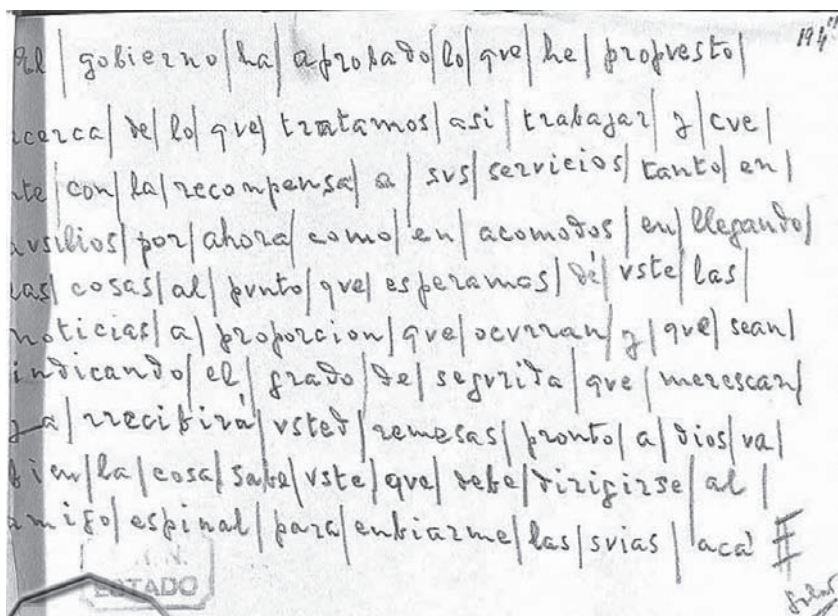 194
El | gobierno | ha | aprobado | lo | que | he | propvesto |
acerca | de | lo | que | tratamos | asi | trabajar | y | cve |
nte | con | la | recompensa | a | svs | servicios | tanto | en |
avsilios | por | ahora | como | en | acomodos | en | llegando |
las | cosas | al | pvnto | qve | esperamos | dè | vste | las |
noticias | a | proporcion | que | ocvrran | y | qve | sean |
indicando | el | grado | de | segvrida | que | merescan |
ya | rrecibirà | vsted | remesas | pronto | a | dios | va |
bien | la | cosa | sabe | vste | que | debe | dirigirse | al |
amigo | espinal | para | enbiarme | las | svias | acà
A. N.
ESTADO